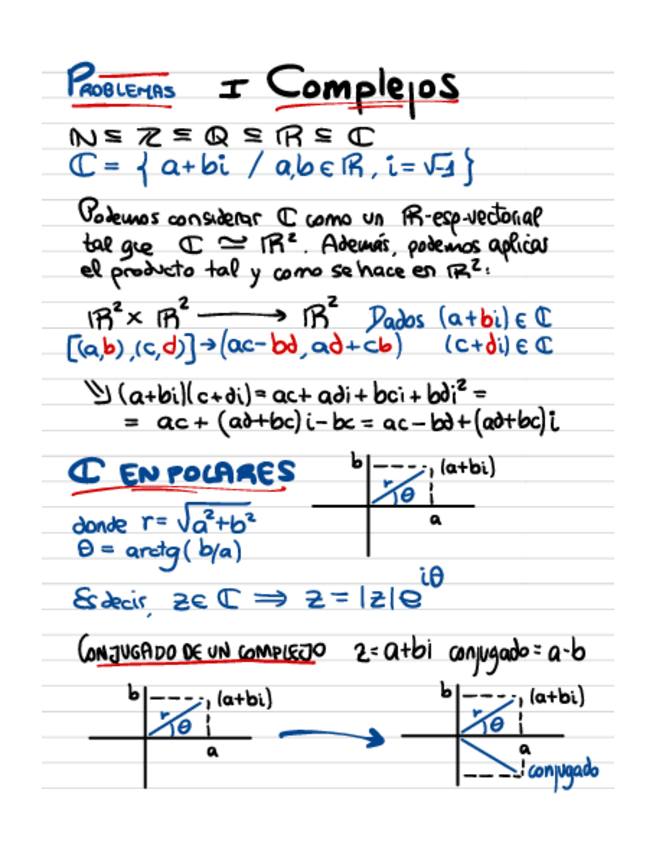 PROBLEMAS I Complejos
N ⊆ Z ⊆ Q ⊆ R ⊆ ℂ
ℂ = { a+bi / a,b ∈ ℝ, i = √-1 }
Podemos considerar ℂ como un ℝ-esp-vectorial
tal que ℂ ≃ ℝ². Además, podemos aplicar
el producto tal y como se hace en ℝ²:
ℝ² x ℝ² ⟶ ℝ² Dados (a+bi) ∈ ℂ
[(a,b),(c,d)] → (ac-bd, ad+cb) (c+di) ∈ ℂ
⇘ (a+bi)(c+di) = ac + adi + bci + bdi² =
= ac + (ad+bc)i - bc = ac - bd + (ad+bc)i
ℂ EN POLARES
b (a+bi)
r θ
a
donde r = √a²+b²
θ = arctg(b/a)
Es decir, z ∈ ℂ ⟹ z = |z|e^iθ
CONJUGADO DE UN COMPLEJO z = a+bi conjugado = a-b
b (a+bi) b (a+bi)
r θ r θ
a a
conjugado